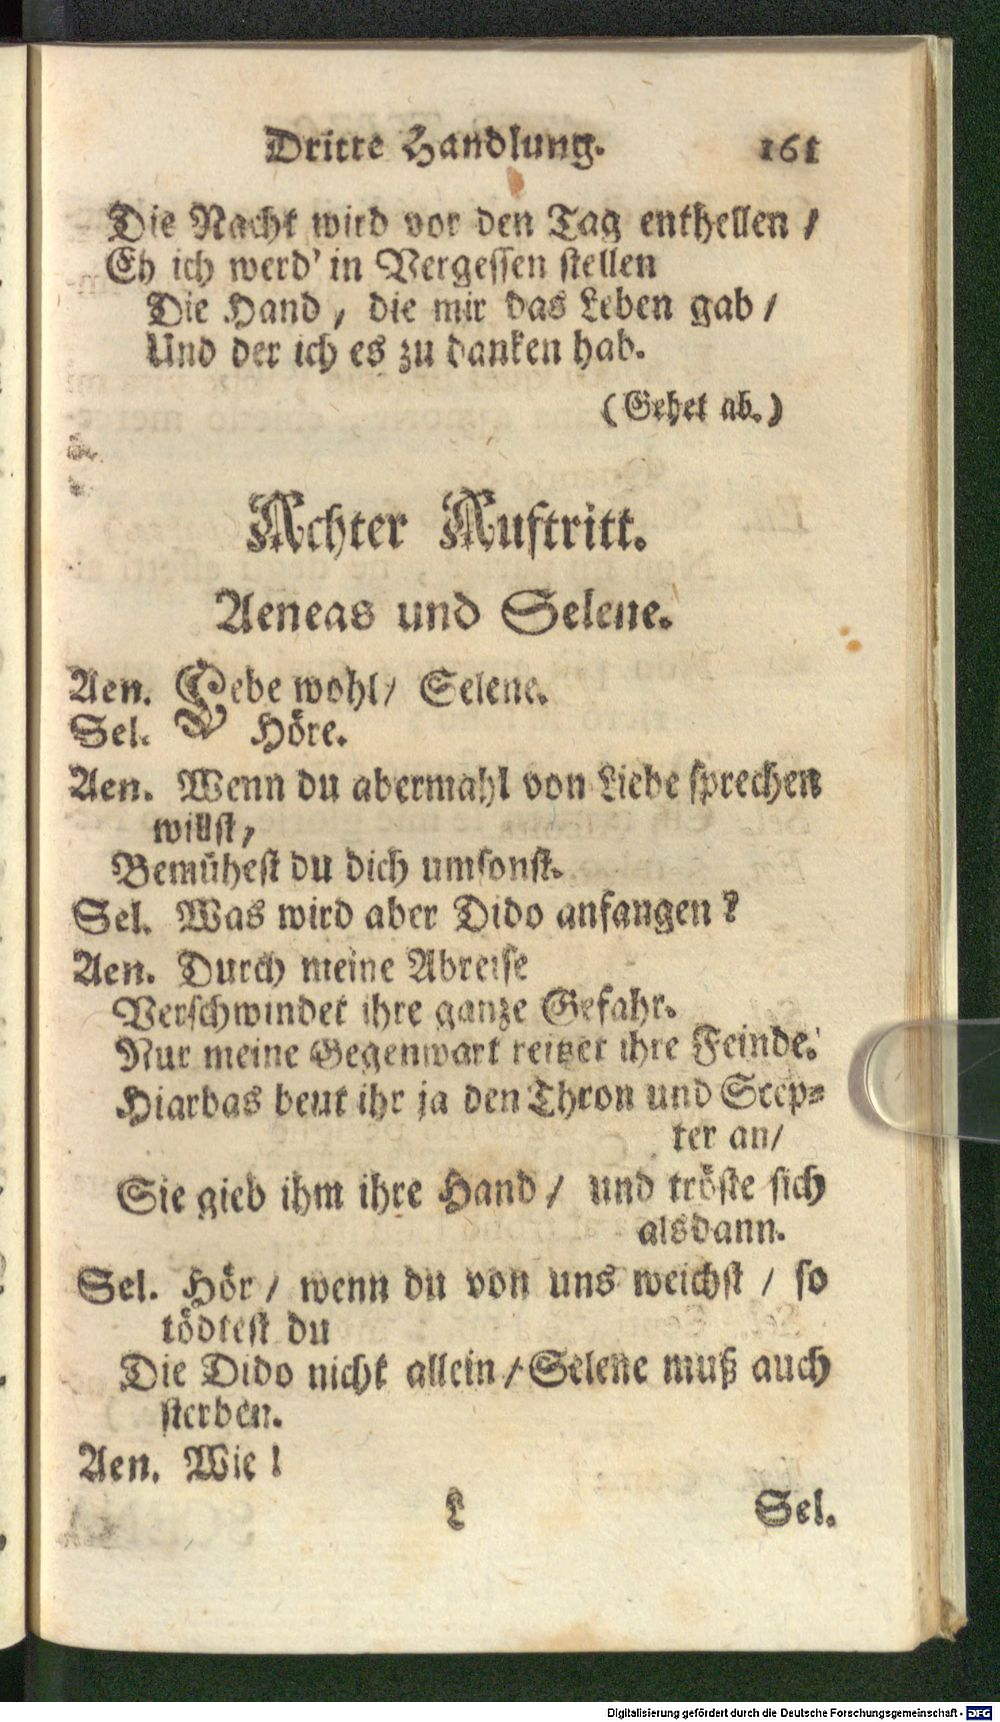 Dritte Handlung. 161
Die Nacht wird vor den Tag enthellen /
Eh ich werd' in Vergessen stellen
Die Hand, die mir das Leben gab /
Und der ich es zu danken hab.
(Gehet ab.)
Achter Auftritt.
Aeneas und Selene.
Aen. Lebe wohl / Selene.
Sel. Höre.
Aen. Wenn du abermahl von Liebe sprechen
willst,
Bemühest du dich umsonst.
Sel. Was wird aber Dido anfangen?
Aen. Durch meine Abreise
Verschwindet ihre ganze Gefahr.
Nur meine Gegenwart reitzet ihre Feinde.
Hiarbas beut ihr ja den Thron und Scep-
ter an /
Sie gieb ihm ihre Hand / und tröste sich
alsdann.
Sel. Hör / wenn du von uns weichst / so
tödtest du
Die Dido nicht allein / Selene muß auch
sterben.
Aen. Wie!
L Sel.
Digitalisierung gefördert durch die Deutsche Forschungsgemeinschaft - DFG